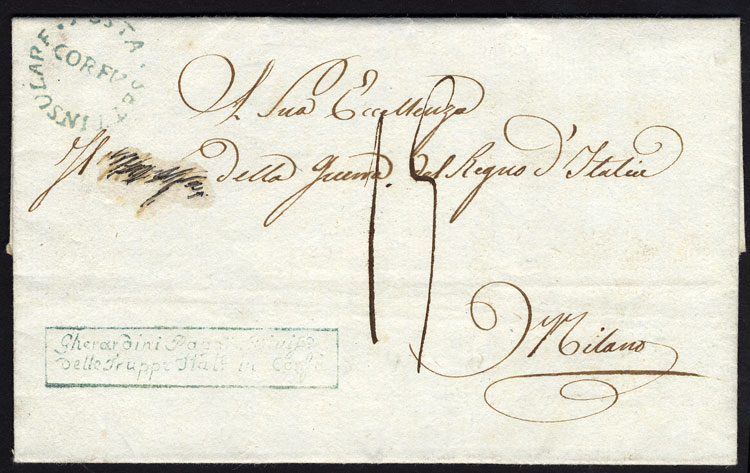 POSTA INSULARE
CORFU
A Sua Eccellenza
Il della Guerra del Regno d'Italia
15
Milano
Gherardini
delle Truppe Ital in